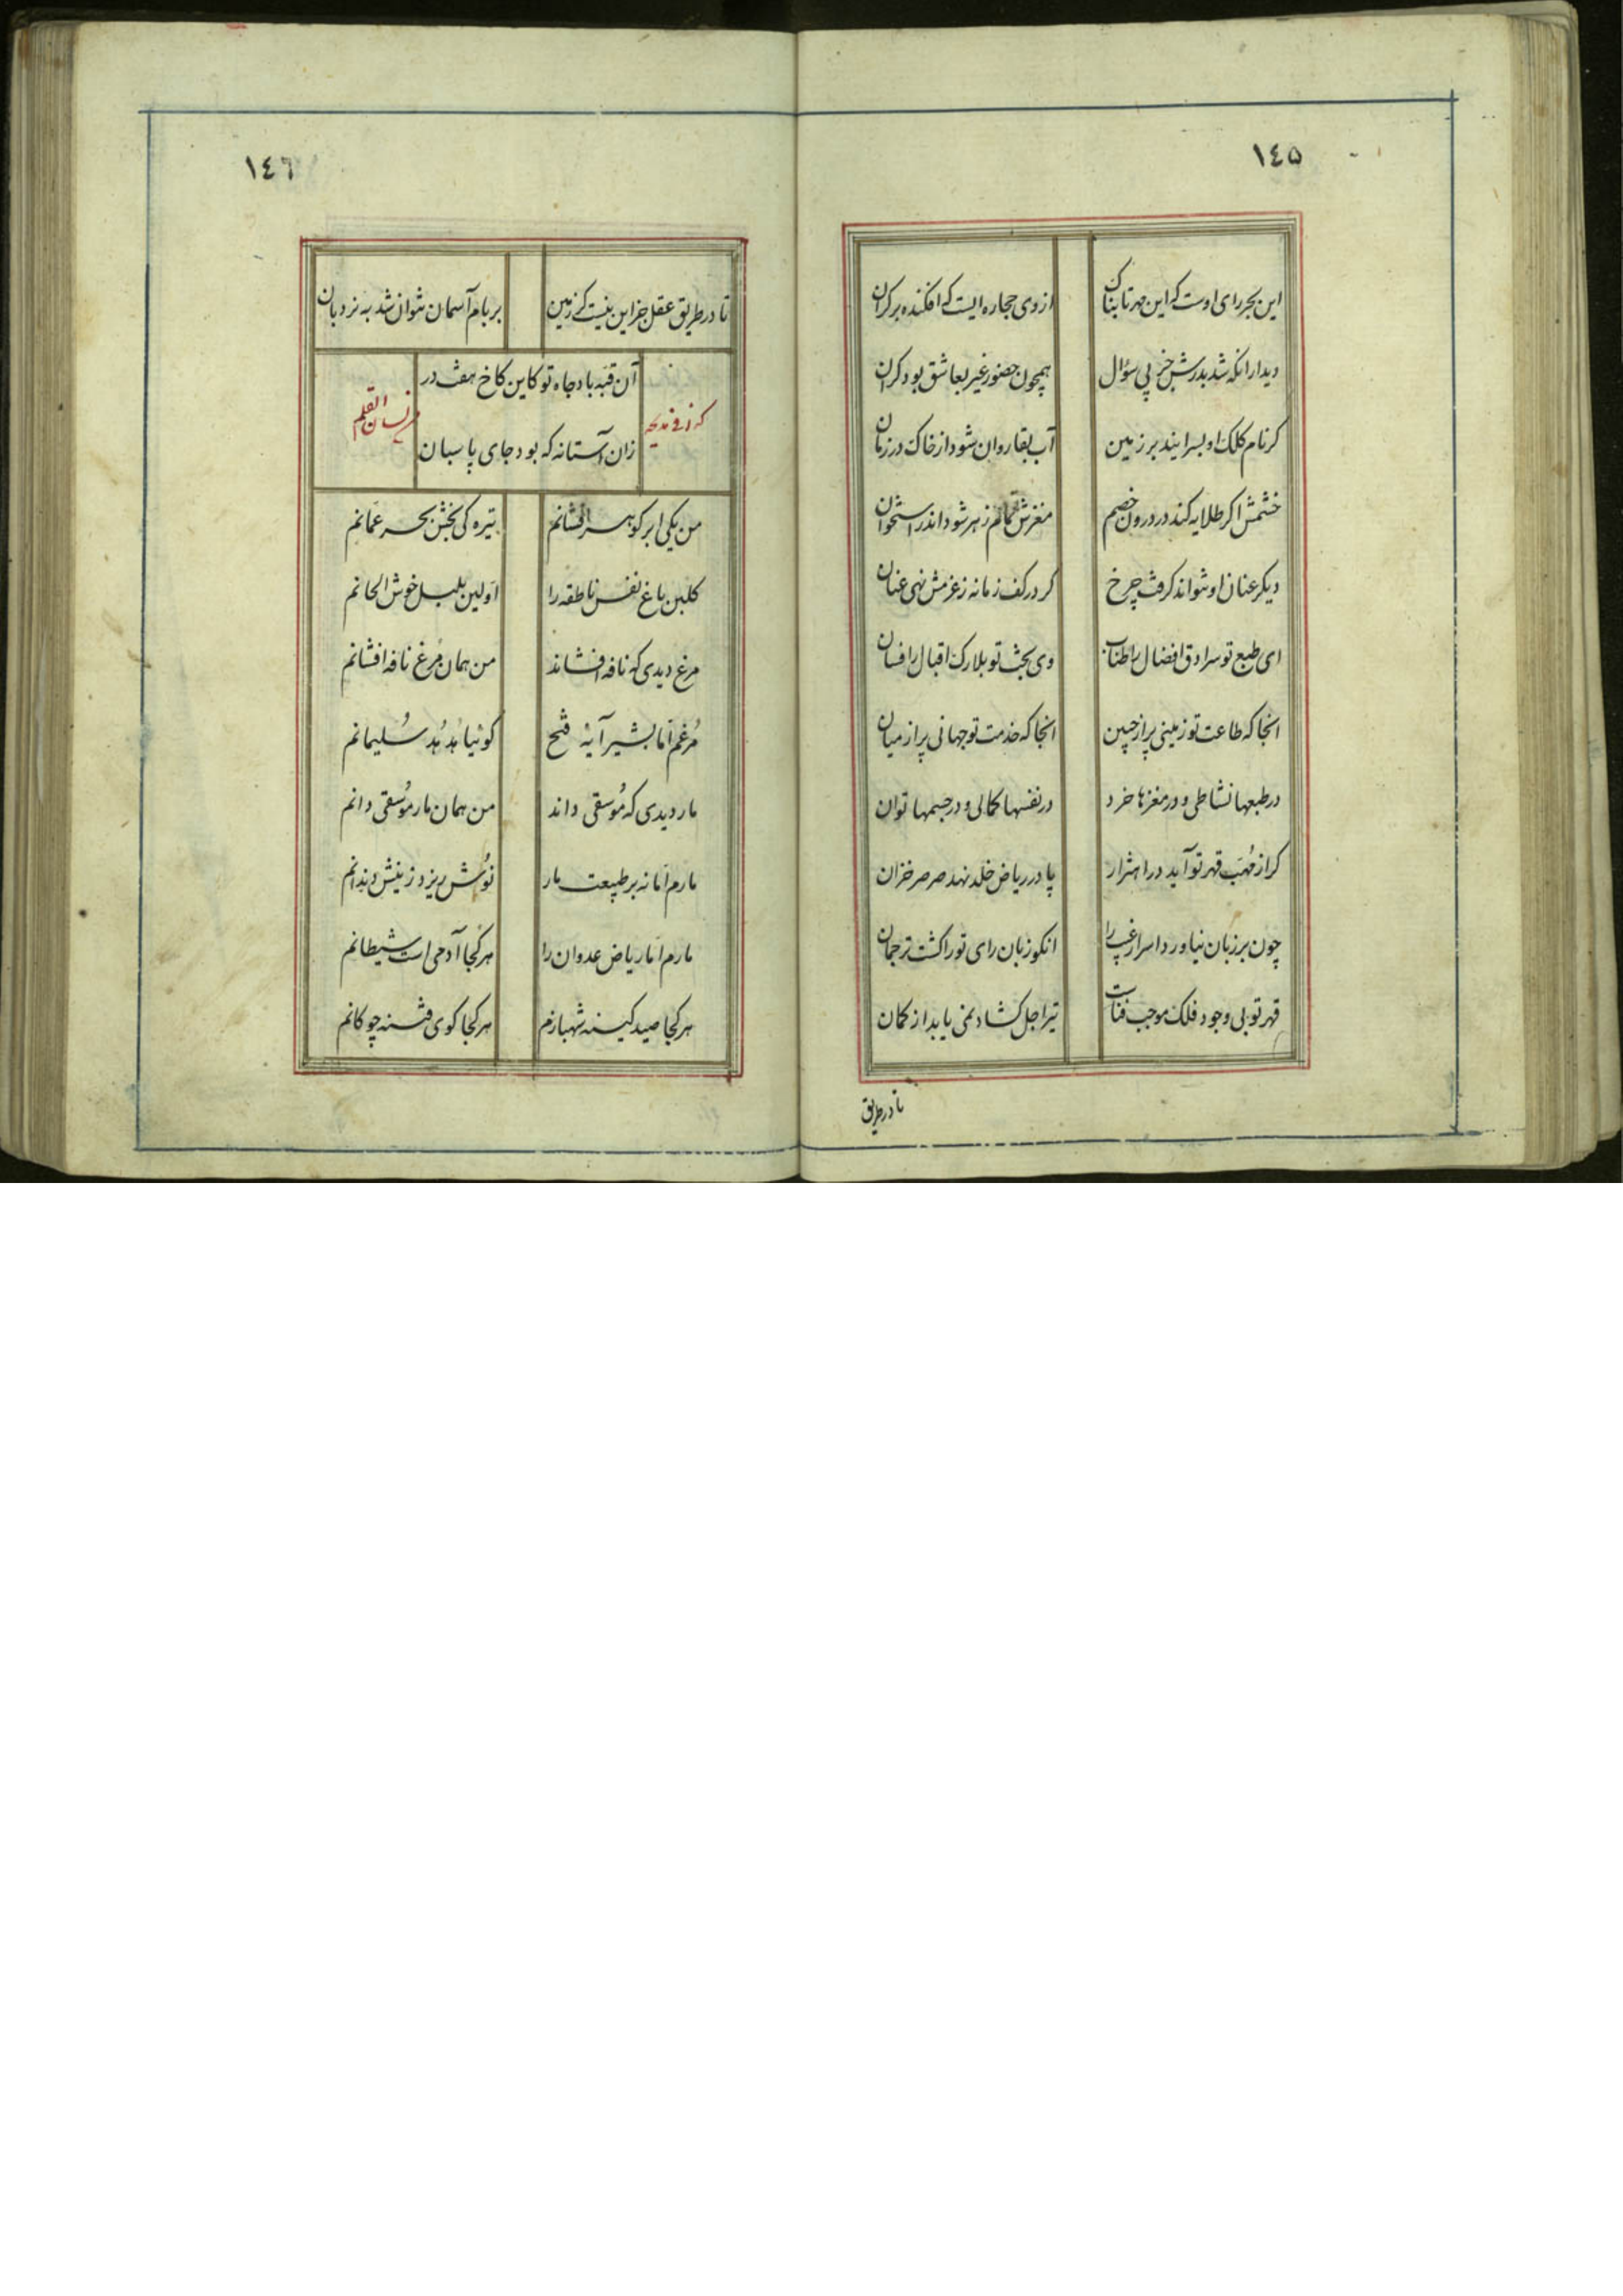 ١٤٥
این بحر رای اوست که این مهر تابناک
از وی حجاره ایست که افکنده بر کران
دیدار انکه شد بدرش جز پی سؤال
همچون حضور غیر بعاشق بود کران
کر نام کلک او بسرایند بر زمین
آب بقا روان شود از خاک در زمان
خشمش اکر طلایه کند در درون خصم
مغزش تمام زهر شود اندر استخوان
دیکر عنان او نتواند کرفت چرخ
کر در کف زمانه ز عزمش نهی عنان
ای طبع تو سرادق افضال را طناب
وی بخت تو بلارک اقبال را فسان
انجا که طاعت تو زمینی پر از جبین
انجا که خدمت تو جهانی پر از میان
در طبعها نشاطی و در مغزها خرد
در نفسها کمالی و در جسمها توان
کر از مهب قهر تو آید در اهتزاز
پا در ریاض خلد نهد صرصر خزان
چون بر زبان نیاورد اسرار غیب را
انکو زبان رای تو را کشت ترجمان
قهر تو بی وجود فلک موجب فناست
تیر اجل کشاد نمی یابد از کمان
تا در طریق
١٤٦
تا در طریق عقل جز این نیست کز زمین
بر بام آسمان نتوان شد به نردبان
آن قبه باد جاه تو کاین کاخ هفت در
زان آستانه که بود جای پاسبان
لسان القلم
من یکی ابر کوهر افشانم
تیره کی بخش بحر عمانم
کلبن باغ نفس ناطقه را
اولین بلبل خوش الحانم
مرغ دیدی که نافه افشاند
من همان مرغ نافه افشانم
مُرغم اما بشیر آیهٔ فتح
کوئیا هُدهُد سُلیمانم
مار دیدی که مُوسقی داند
من همان مار مُوسقی دانم
مارم اما نه بر طبیعت مار
نُوش ریزد ز نیش دندانم
مارم اما ریاض عدوان را
هر کجا آدمی است شیطانم
هر کجا صید کینه شهبازم
هر کجا کوی فتنه چوکانم